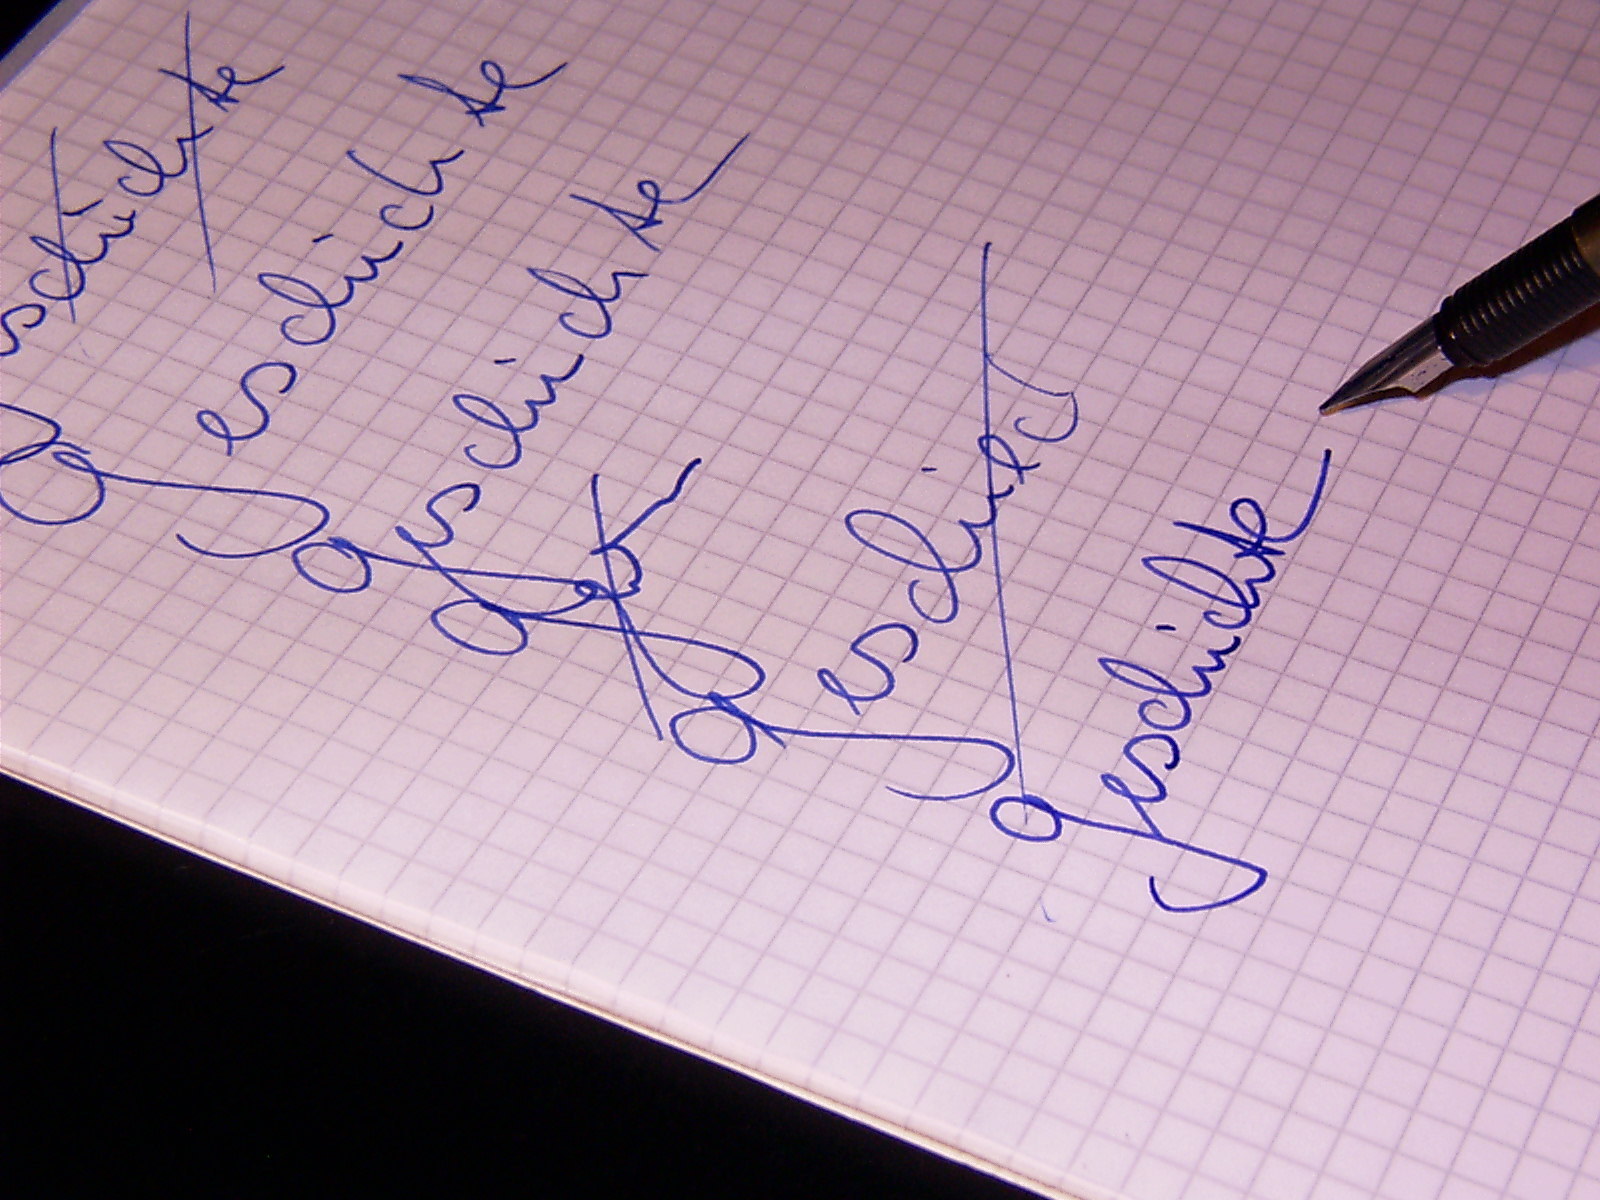 geschichte
geschichte
geschichte
geschicht
geschichte